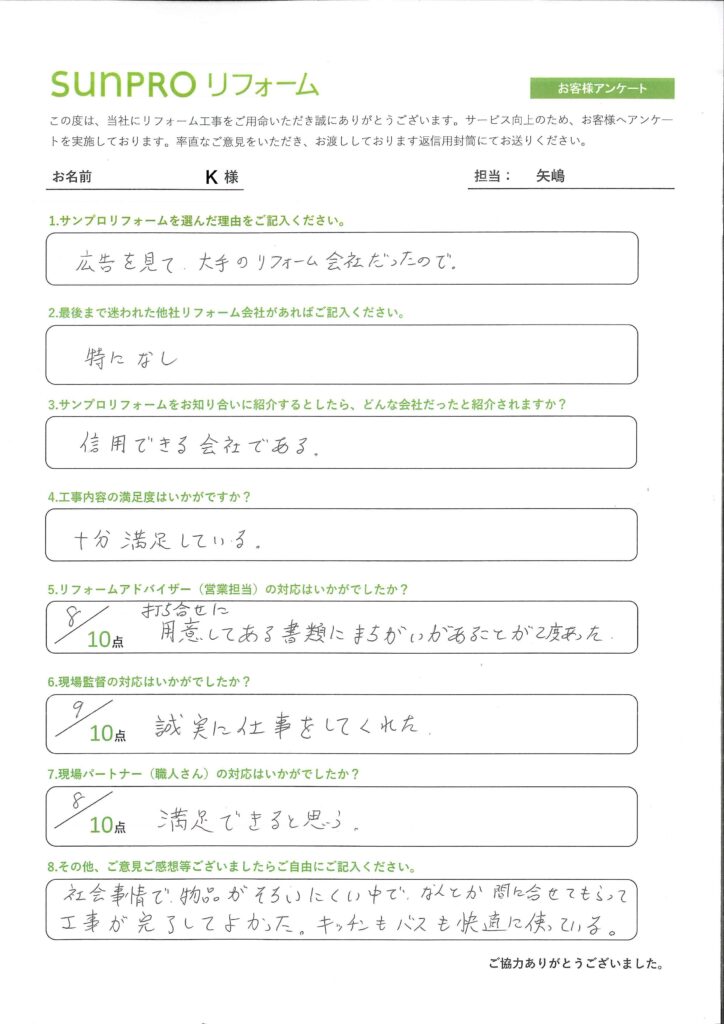 SUNPRO リフォーム
お客様アンケート
この度は、当社にリフォーム工事をご用命いただき誠にありがとうございます。サービス向上のため、お客様へアンケー
トを実施しております。率直なご意見をいただき、お渡ししております返信用封筒にてお送りください。
お名前 K 様 担当： 矢嶋
1.サンプロリフォームを選んだ理由をご記入ください。
広告を見て、大手のリフォーム会社だったので。
2.最後まで迷われた他社リフォーム会社があればご記入ください。
特になし
3.サンプロリフォームをお知り合いに紹介するとしたら、どんな会社だったと紹介されますか？
信用できる会社である。
4.工事内容の満足度はいかがですか？
十分満足している。
5.リフォームアドバイザー（営業担当）の対応はいかがでしたか？
8/10点 打ち合せに
用意してある書類にまちがいがあることが2度あった.
6.現場監督の対応はいかがでしたか？
9/10点 誠実に仕事をしてくれた.
7.現場パートナー（職人さん）の対応はいかがでしたか？
8/10点 満足できると思う。
8.その他、ご意見ご感想等ございましたらご自由にご記入ください。
社会事情で、物品がそろいにくい中で、なんとか間に合せてもらって
工事が完了してよかった。キッチンもバスも快適に使っている。
ご協力ありがとうございました。